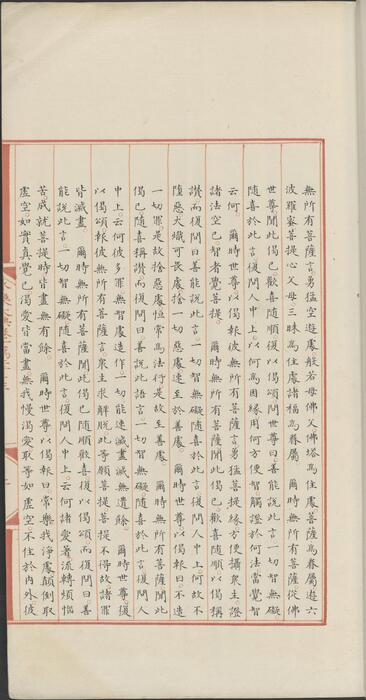 無所有菩薩言勇猛空遊處般若母佛父佛塔爲住處菩薩爲眷屬遊六
波羅蜜菩提心父母三昧爲住處諸福爲眷屬爾時無所有菩薩從佛
世尊聞此偈已歡喜随順復以偈頌問世尊曰善能說此言一切智無礙
随喜於此言復問人中上以何爲因緣用何方便智觸證於何法當覺智
云何爾時世尊以偈報彼無所有菩薩言勇猛菩提緣方便攝衆生證
諸法空已智者覺菩提爾時無所有菩薩聞此偈已歡喜随順以偈稱
讚而復問曰善能說此言一切智無礙随喜於此言復問人中上何故不
墮惡大熾可畏處捨一切惡處速至於善處爾時世尊以偈報曰不造
一切罪是故捨惡處恒常爲法行是故至善處爾時無所有菩薩聞此
偈已随喜稱讚而復問曰善說此語言一切智無礙随喜於此言復問人
中上云何彼多罪無智處造作一切能速滅盡滅無遺餘爾時世尊復
以偈頌報彼無所有菩薩言衆主求解脫此等願菩提菩提不得故諸罪
皆滅盡爾時無所有菩薩聞此偈已随順歡喜復以偈頌而復問曰善
能說此言一切智無礙随喜於此言復問人中上云何諸愛著流轉煩惱
苦成就菩提時皆盡無有餘爾時世尊以偈報曰常樂我淨處顛倒取
虛空如實真覺已渴愛皆當盡無我慢渴愛取等如虛空不住於內外彼